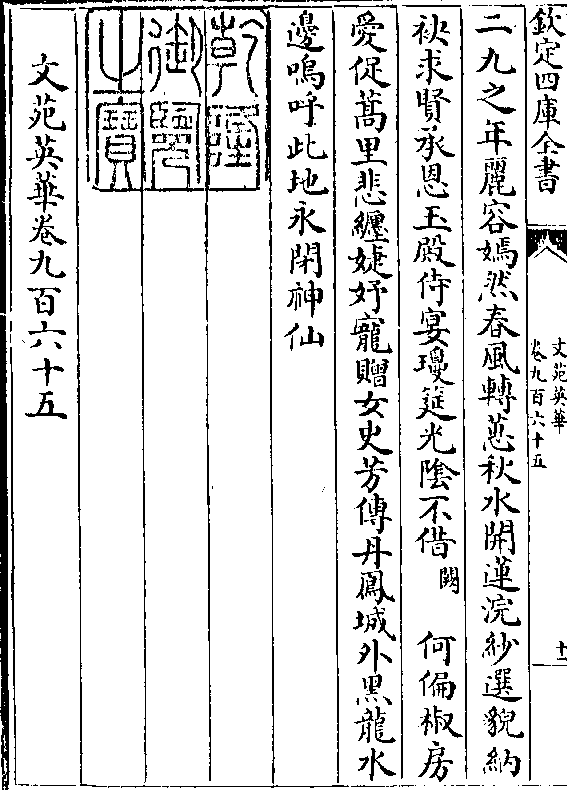 欽定四庫全書
文苑英華
卷九百六十五
十二
二九之年麗容嫣然春風轉蕙秋水開蓮浣紗選貌納
袂求賢承恩玉殿侍宴瓊筵光陰不借闕何偏椒房
愛促蒿里悲纏婕妤寵贈女史芳傳丹鳳城外黑龍水
邊嗚呼此地永閉神仙
乾隆
御覽
之寶
文苑英華卷九百六十五